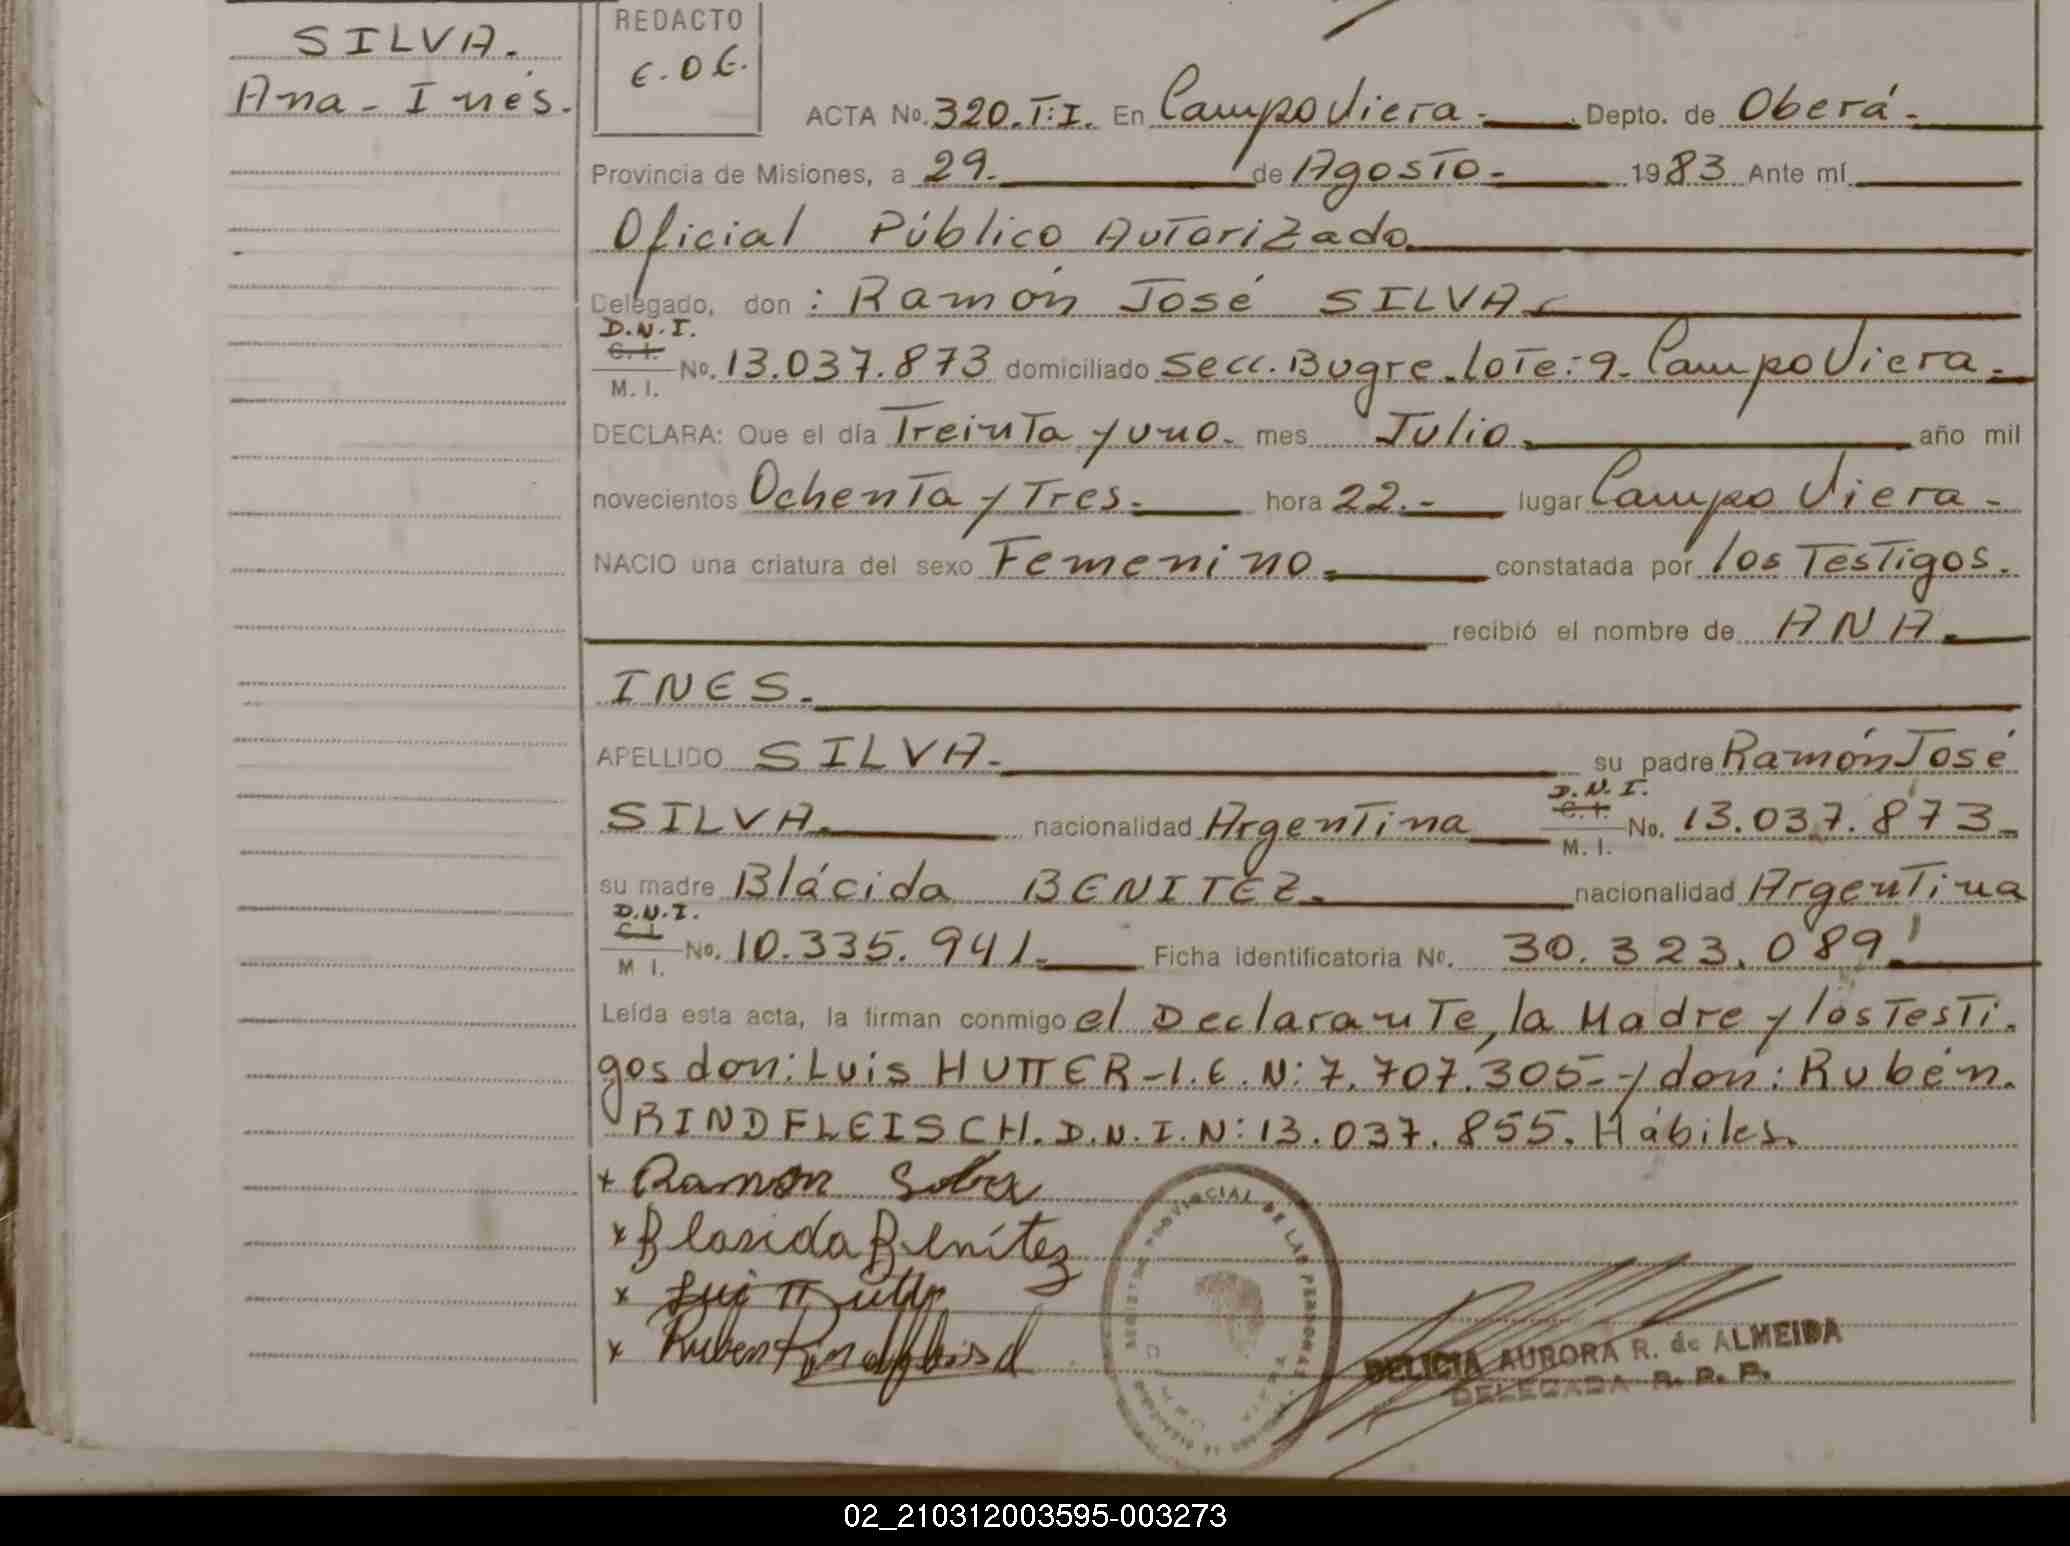 SILVA.
Ana - Inés.
REDACTO
E.O.E.
ACTA No. 320.T:I. En Campo Viera.- Depto. de Oberá.-
Provincia de Misiones, a 29. de Agosto.- 1983 Ante mí
Oficial Público Autorizado
Delegado, don : Ramón José SILVA
D.N.I.
C.I.
M. I. No. 13.037.873 domiciliado Secc. Bugre. lote: 9. Campo Viera.-
DECLARA: Que el día Treinta y uno. mes Julio. año mil
novecientos Ochenta y Tres. hora 22.- lugar Campo Viera -
NACIO una criatura del sexo Femenino. constatada por los Testigos.
recibió el nombre de ANA
INES.
APELLIDO SILVA. su padre Ramón José
SILVA. nacionalidad Argentina D.N.I. C.I. M. I. No. 13.037.873
su madre Blácida BENITEZ. nacionalidad Argentina
D.N.I.
C.I.
M I. No. 10.335.941. Ficha identificatoria No. 30.323.089
Leída esta acta, la firman conmigo el Declarante, la Madre y los Testi.
gos don: Luis HUTTER - L.E.N: 7.707.305.- y don: Rubén.
RINDFLEISCH. D.N.I.N: 13.037.855. Hábiles.
x Ramon
x Blasida Benítez
x
x Ruben
PROVINCIAL DE LAS PERSONAS
DELICIA AURORA R. de ALMEIDA
DELEGADA R. P. P.
02_210312003595-003273